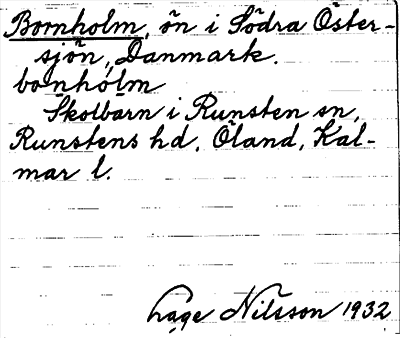 Bornholm, ön i Södra Öster-
sjön, Danmark.
bo̱nhólm
Skolbarn i Runsten sn,
Runstens hd, Öland, Kal-
mar l.
Lage Nilsson 1932